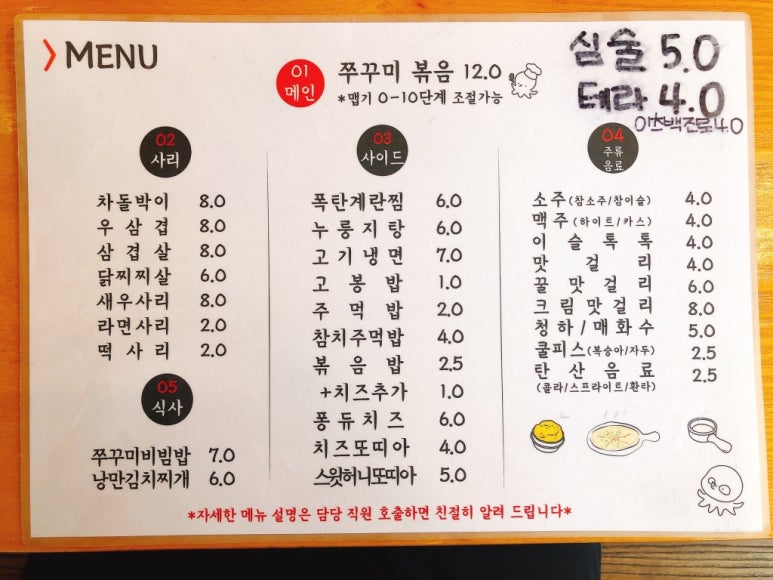 > MENU
01 메인
쭈꾸미 볶음 12.0
*맵기 0-10단계 조절가능
심술 5.0
테라 4.0
이츠백진로 4.0
02 사리
차돌박이 8.0
우삼겹 8.0
삼겹살 8.0
닭찌찌살 6.0
새우사리 8.0
라면사리 2.0
떡사리 2.0
05 식사
쭈꾸미비빔밥 7.0
낭만김치찌개 6.0
03 사이드
폭탄계란찜 6.0
누룽지탕 6.0
고기냉면 7.0
고봉밥 1.0
주먹밥 2.0
참치주먹밥 4.0
볶음밥 2.5
+치즈추가 1.0
퐁듀치즈 6.0
치즈또띠아 4.0
스윗허니또띠아 5.0
04 주류 음료
소주(참소주/참이슬) 4.0
맥주(하이트/카스) 4.0
이슬톡톡 4.0
맛걸리 4.0
꿀맛걸리 6.0
크림맛걸리 8.0
청하/매화수 5.0
쿨피스(복숭아/자두) 2.5
탄산음료 2.5
(콜라/스프라이트/환타)
*자세한 메뉴 설명은 담당 직원 호출하면 친절히 알려 드립니다*